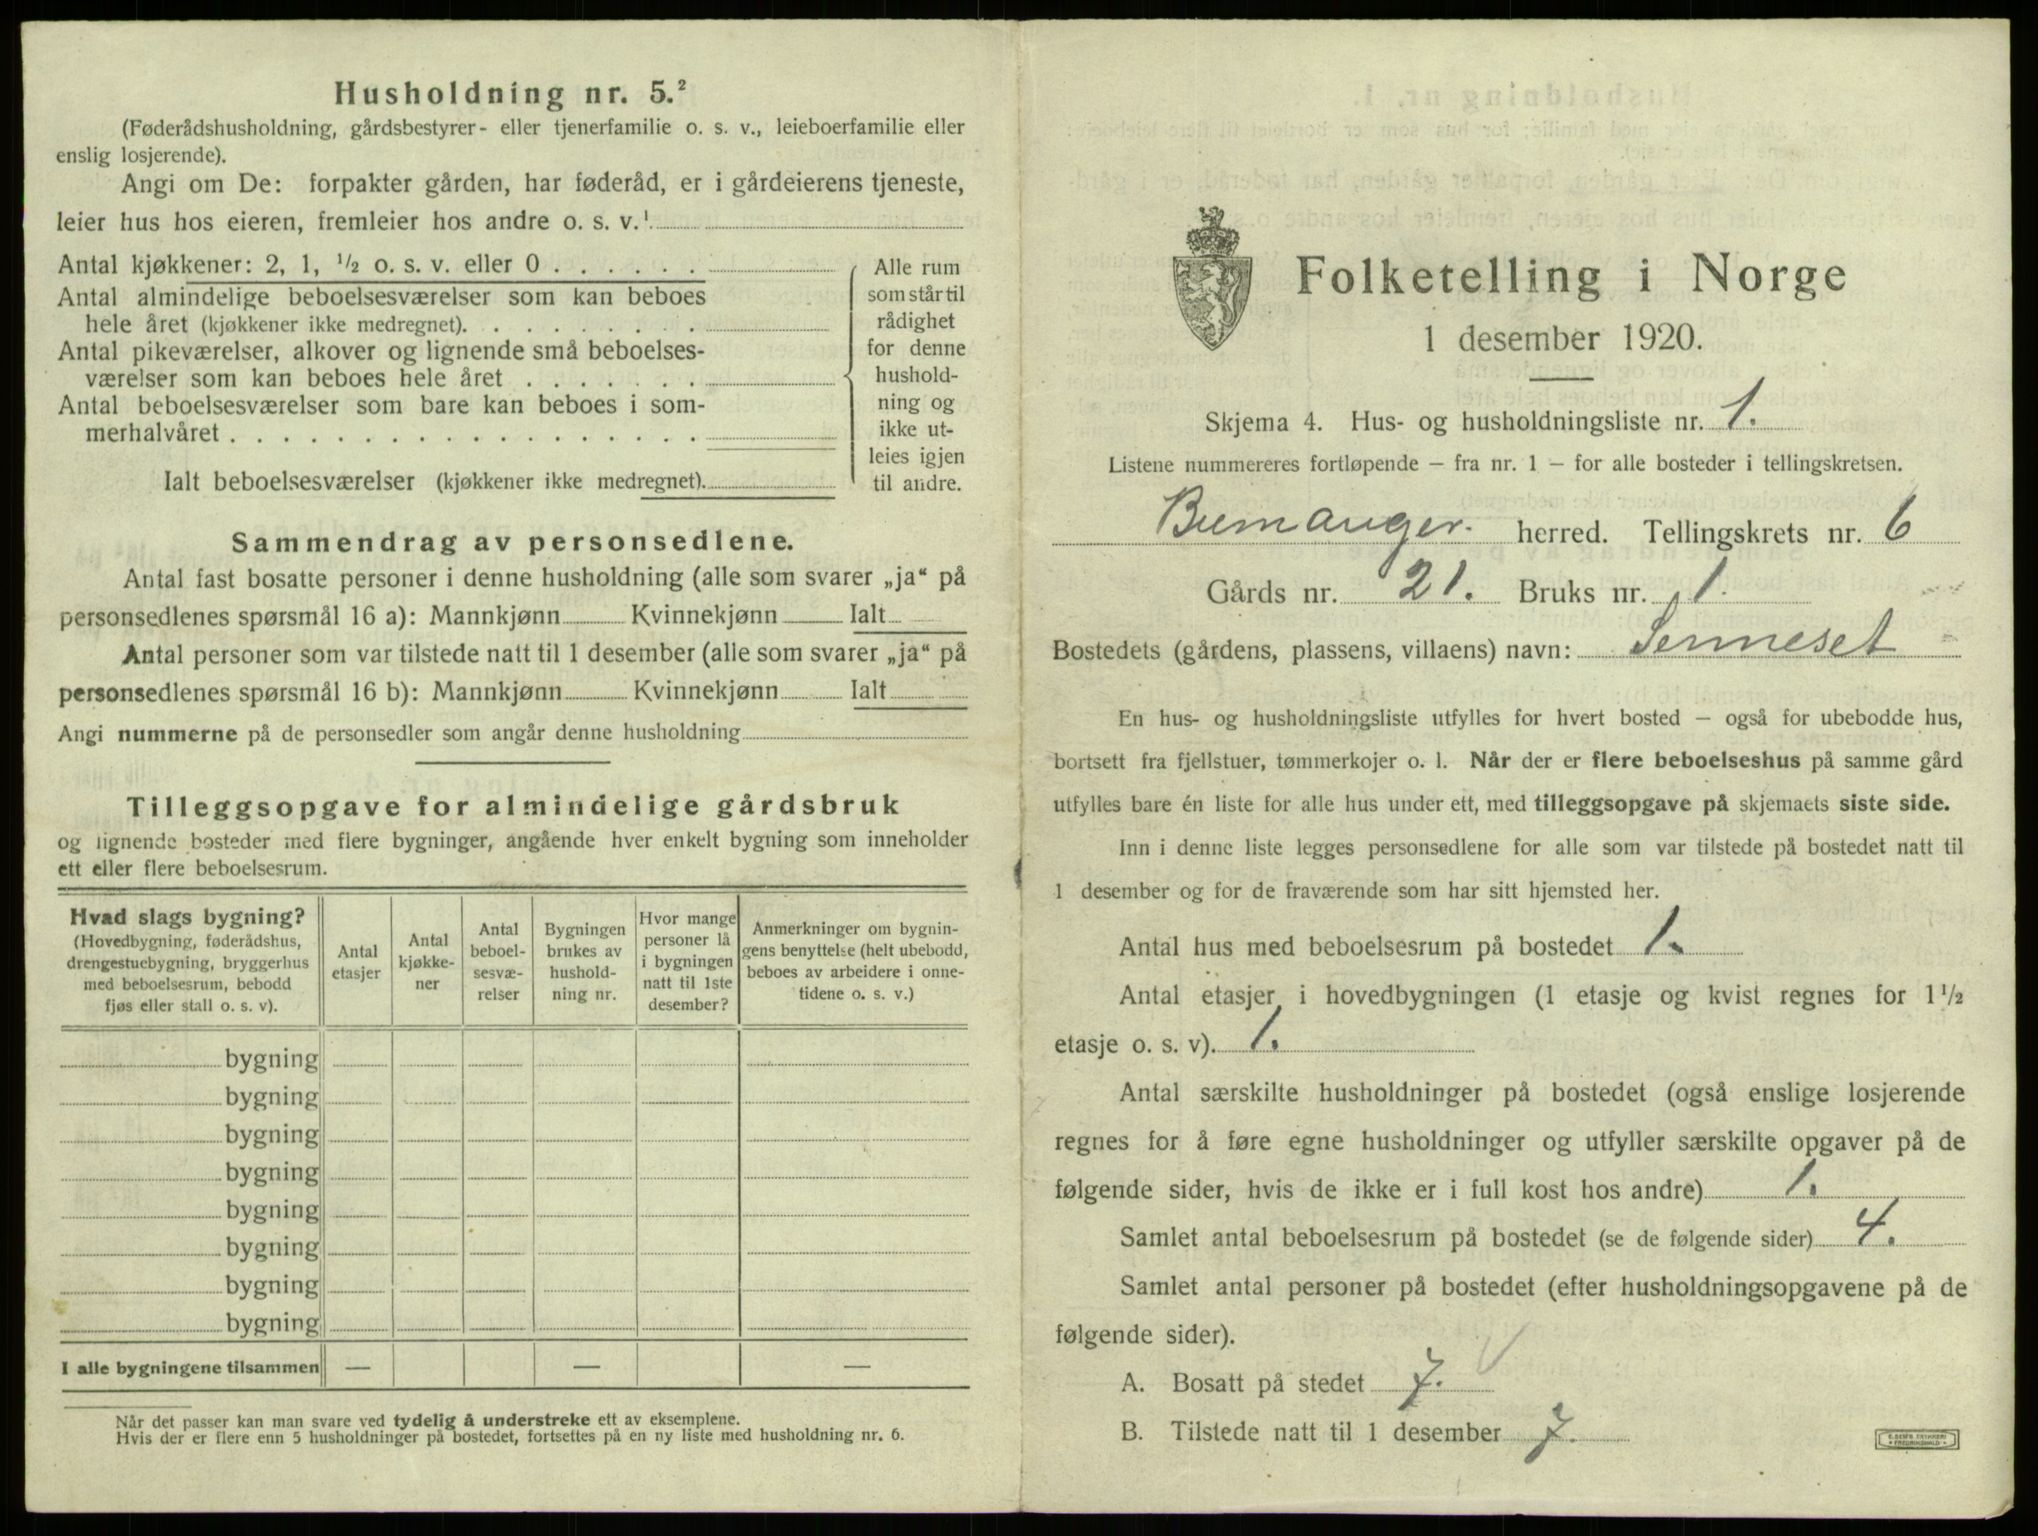 Husholdning nr. 5.²
(Føderådshusholdning, gårdsbestyrer- eller tjenerfamilie o. s. v., leieboerfamilie eller
enslig losjerende).
Angi om De: forpakter gården, har føderåd, er i gårdeierens tjeneste,
leier hus hos eieren, fremleier hos andre o. s. v.¹
Antal kjøkkener: 2, 1, ½ o. s. v. eller 0 . . . . . .
Antal almindelige beboelsesværelser som kan beboes
hele året (kjøkkener ikke medregnet). . . . . . . . .
Antal pikeværelser, alkover og lignende små beboelses-
værelser som kan beboes hele året . . . . . . .
Antal beboelsesværelser som bare kan beboes i som-
merhalvåret . . . . . . . . . . . . . . . . . .
Ialt beboelsesværelser (kjøkkener ikke medregnet).
Alle rum
som står til
rådighet
for denne
hushold-
ning og
ikke ut-
leies igjen
til andre.
Sammendrag av personsedlene.
Antal fast bosatte personer i denne husholdning (alle som svarer „ja“ på
personsedlenes spørsmål 16 a): Mannkjønn Kvinnekjønn Ialt
Antal personer som var tilstede natt til 1 desember (alle som svarer „ja“ på
personsedlenes spørsmål 16 b): Mannkjønn Kvinnekjønn Ialt
Angi nummerne på de personsedler som angår denne husholdning
Tilleggsopgave for almindelige gårdsbruk
og lignende bosteder med flere bygninger, angående hver enkelt bygning som inneholder
ett eller flere beboelsesrum.
Hvad slags bygning?
(Hovedbygning, føderådshus,
drengestuebygning, bryggerhus
med beboelsesrum, bebodd
fjøs eller stall o. s. v).
Antal
etasjer
Antal
kjøkke-
ner
Antal
beboel-
sesvæ-
relser
Bygningen
brukes av
hushold-
ning nr.
Hvor mange
personer lå
i bygningen
natt til 1ste
desember?
Anmerkninger om bygnin-
gens benyttelse (helt ubebodd,
beboes av arbeidere i onne-
tidene o. s. v.)
bygning
bygning
bygning
bygning
bygning
bygning
bygning
bygning
I alle bygningene tilsammen — — —
Når det passer kan man svare ved tydelig å understreke ett av eksemplene.
Hvis der er flere enn 5 husholdninger på bostedet, fortsettes på en ny liste med husholdning nr. 6.
Folketelling i Norge
1 desember 1920.
Skjema 4. Hus- og husholdningsliste nr. 1.
Listene nummereres fortløpende – fra nr. 1 – for alle bosteder i tellingskretsen.
Bremanger herred. Tellingskrets nr. 6
Gårds nr. 21. Bruks nr. 1.
Bostedets (gårdens, plassens, villaens) navn: Senneset
En hus- og husholdningsliste utfylles for hvert bosted – også for ubebodde hus,
bortsett fra fjellstuer, tømmerkojer o. l. Når der er flere beboelseshus på samme gård
utfylles bare én liste for alle hus under ett, med tilleggsopgave på skjemaets siste side.
Inn i denne liste legges personsedlene for alle som var tilstede på bostedet natt til
1 desember og for de fraværende som har sitt hjemsted her.
Antal hus med beboelsesrum på bostedet 1.
Antal etasjer i hovedbygningen (1 etasje og kvist regnes for 1½
etasje o. s. v). 1.
Antal særskilte husholdninger på bostedet (også enslige losjerende
regnes for å føre egne husholdninger og utfyller særskilte opgaver på de
følgende sider, hvis de ikke er i full kost hos andre) 1.
Samlet antal beboelsesrum på bostedet (se de følgende sider) 4.
Samlet antal personer på bostedet (efter husholdningsopgavene på de
følgende sider).
A. Bosatt på stedet 7.
B. Tilstede natt til 1 desember 7.